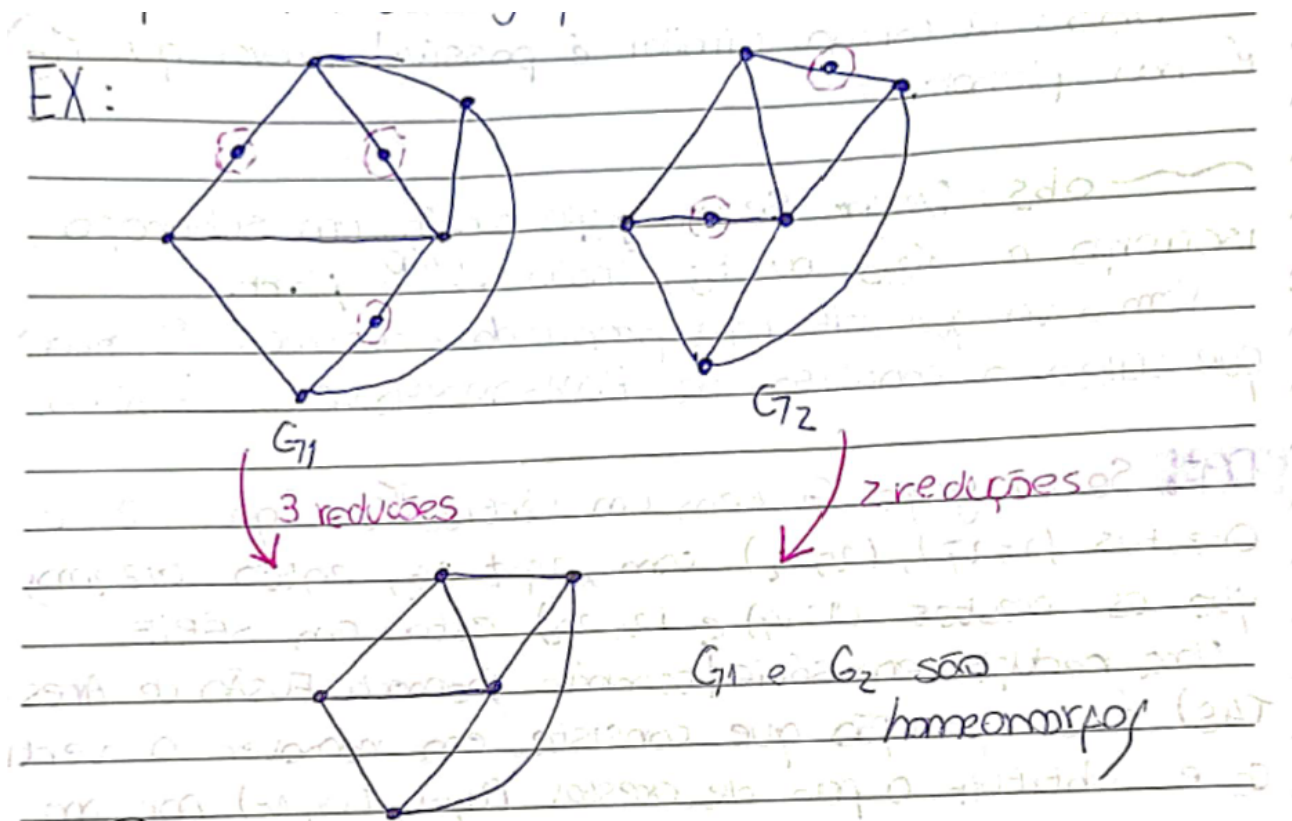 EX:
G1
G2
3 reduções
2 reduções
G1 e G2 são
homeomorfos